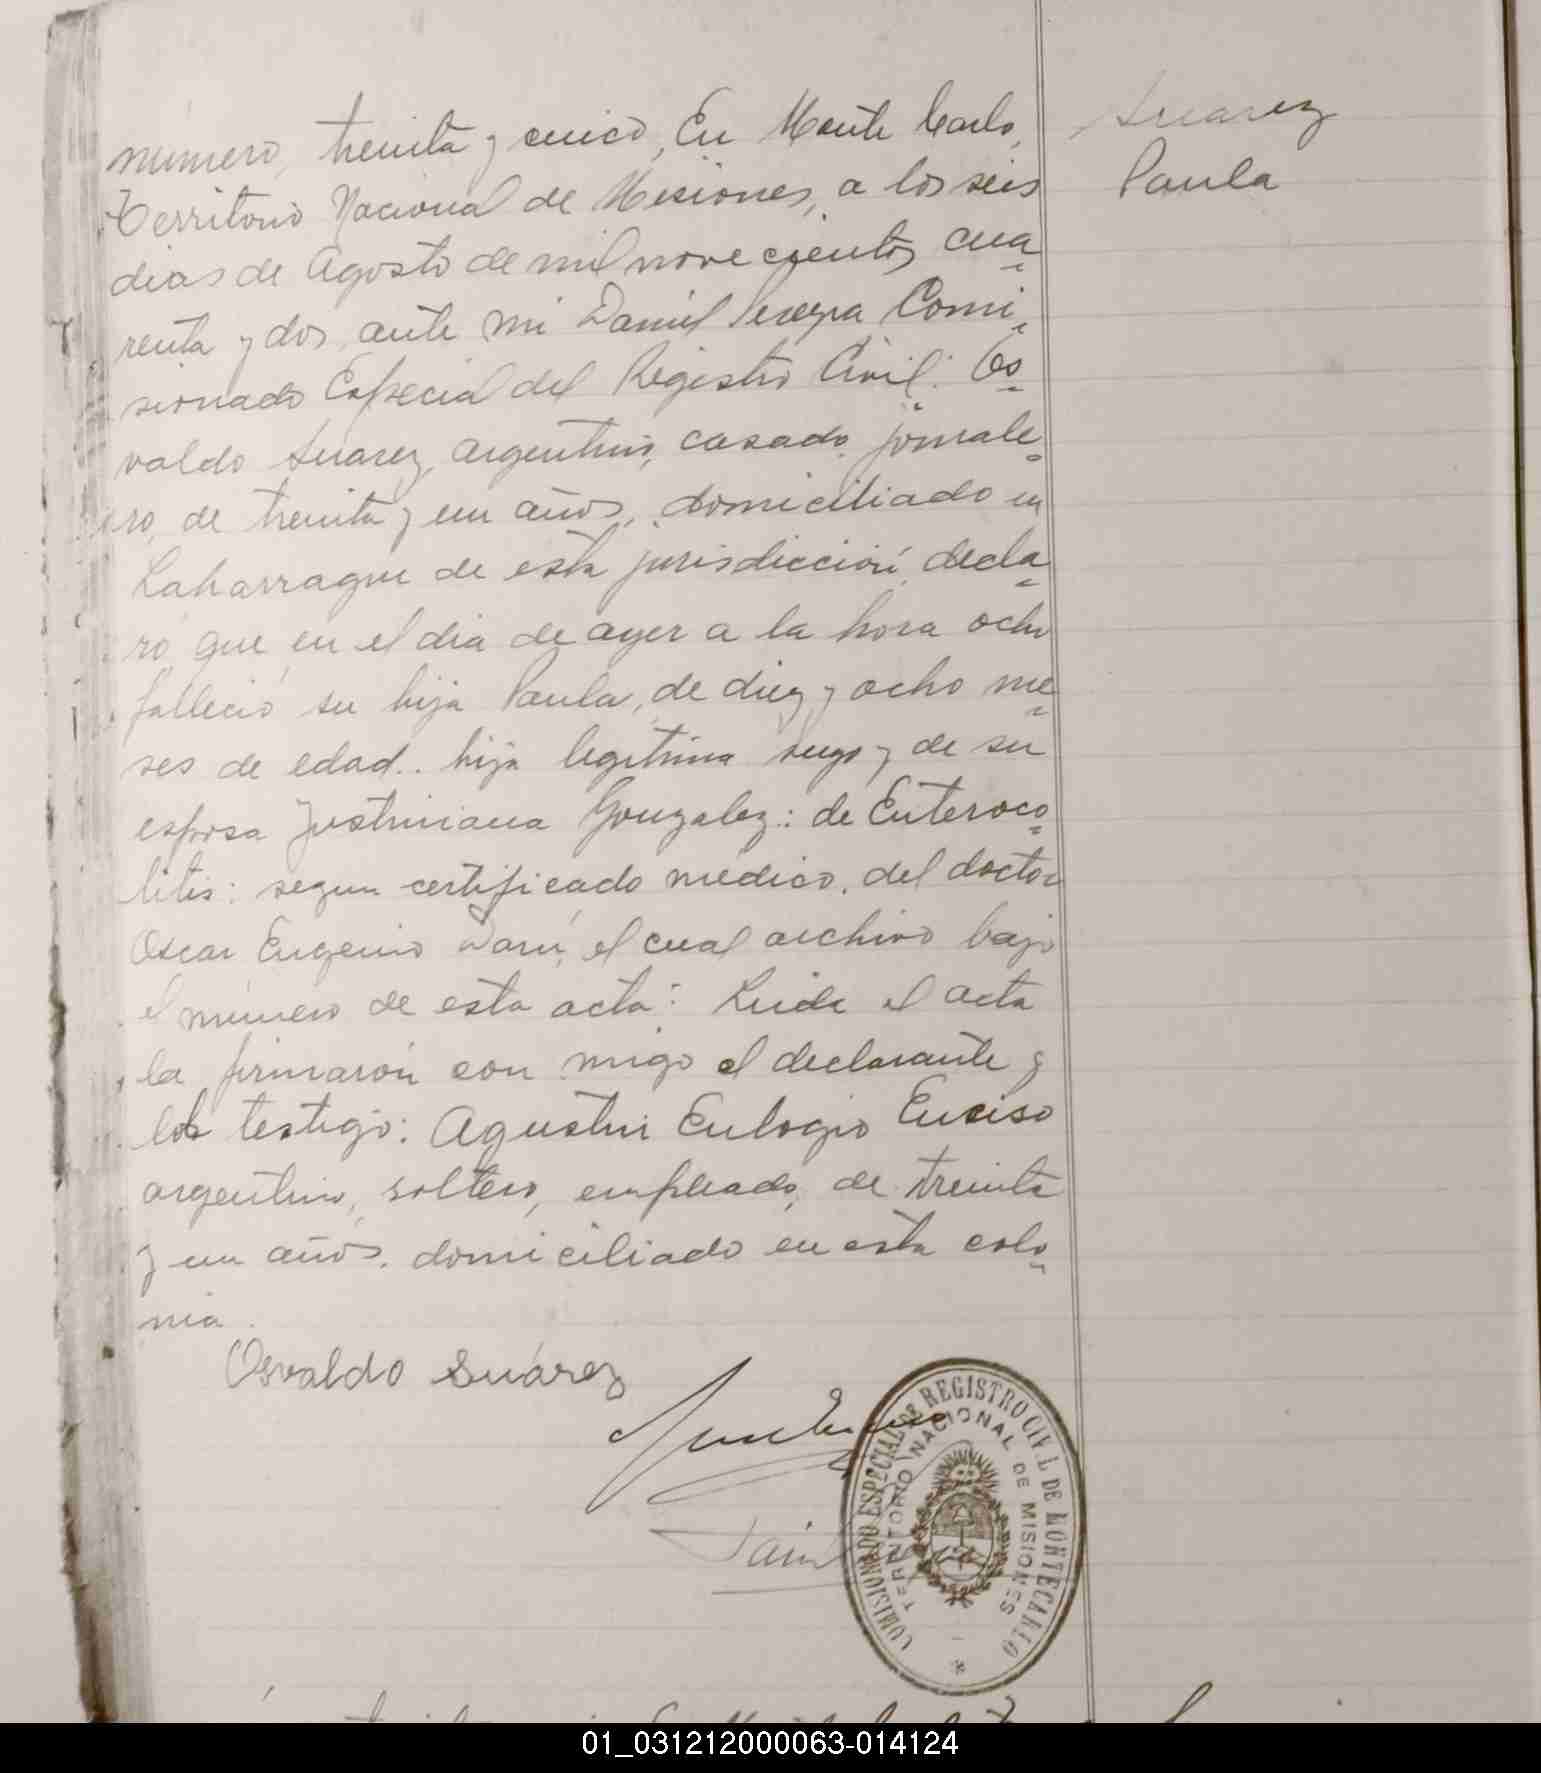 número, treinta y cinco, En Monte Carlo,
Territorio Nacional de Misiones, a los seis
dias de Agosto de mil novecientos cua
renta y dos, ante mi Daniel Pereyra Comi
sionado Especial del Registro Civil: Os
valdo Suarez, argentino, casado, jornale
ro, de treinta y un años, domiciliado en
Laharrague de esta jurisdicción, decla
ró que en el dia de ayer a la hora ocho
falleció su hija Paula, de diez y ocho me
ses de edad.. hija legitima suya y de su
esposa Justiniana Gonzalez: de Enteroco
litis: segun certificado médico, del doctor
Oscar Eugenio Darú, el cual archivo bajo
el número de esta acta: Leida el acta
la firmarón con migo el declarante y
los testigo: Agustin Eulogio Enciso
argentino, soltero, empleado, de treinta
y un años, domiciliado en esta colo
nia.
Suarez
Paula
Osvaldo Suárez
COMISIONADO ESPECIAL DE REGISTRO CIVIL DE MONTECARLO
TERRITORIO NACIONAL DE MISIONES
01_031212000063-014124